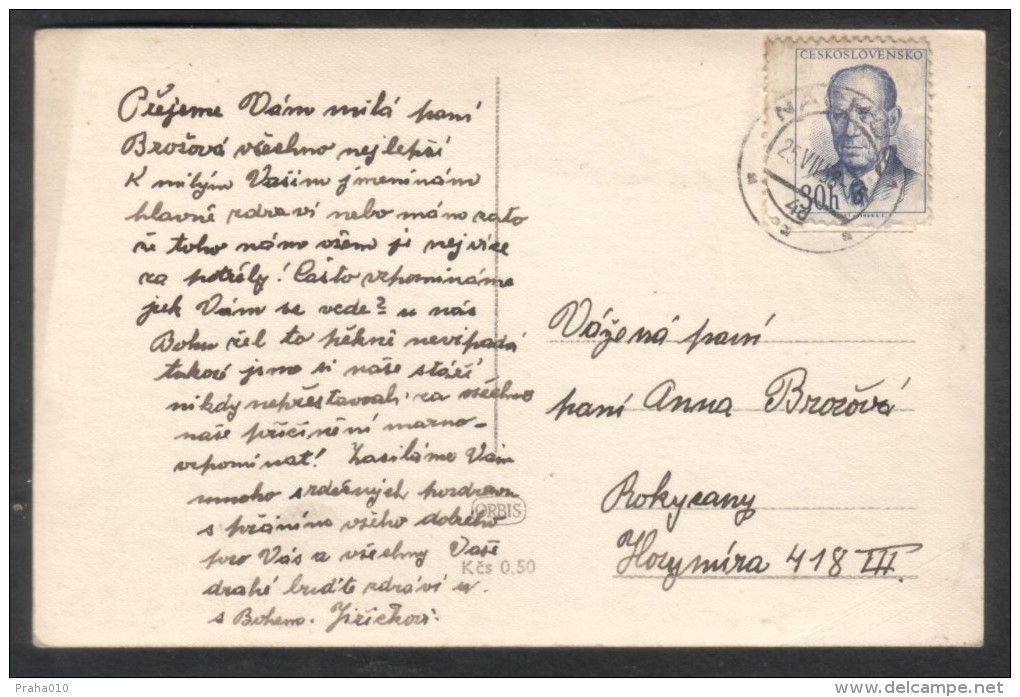 Přejeme Vám milá paní
Brožová všechno nejlepší
K milým Vašim jmeninám
hlavně zdraví nebo máme za to
že toho nám všem je nejvíce
za potřeby! Často vzpomínáme
jak Vám se vede? u nás
Bohu žel to pěkně nevipadá
takové jsme si naše stáří
nikdy nepřestavovali za všechno
naše přičinění marno-
vzpomínat! Zasíláme Vám
mnoho srdečných pozdravů
s přáním všeho dobrého
pro Vás a všechny Vaše
drahé buďte zdrávi
s Bohem. Jiřičkovi.
ORBIS
Kčs 0,50
ČESKOSLOVENSKO
30h
25 VII
Vážená paní
paní Anna Brožová
Rokycany
Horymíra 418 III.
Praha010
delcampe.net